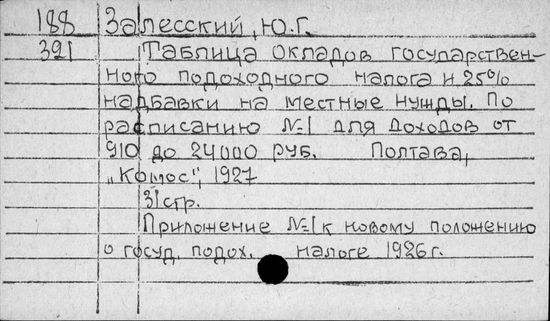 188 Залесский, Ю.Г.
321 Таблица окладов государствен-
ного подоходного налога и 25%
надбавки на местные нужды. По
расписанию №1 для доходов от
910 до 24000 руб. Полтава,
„Космос", 1927
31стр.
Приложение №1 к новому положению
о госуд. подох. налоге 1926г.